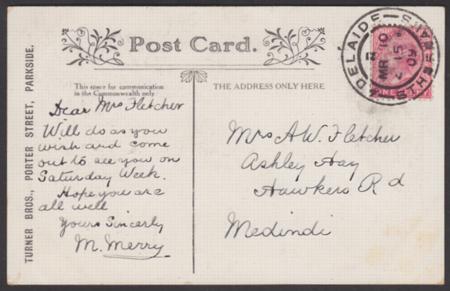 Post Card.
This space for communication
in the Commonwealth only
THE ADDRESS ONLY HERE
TURNER BROS., PORTER STREET, PARKSIDE.
ADELAIDE
MR 10
09
Dear Mrs Fletcher
Will do as you
wish and come
out to see you on
Saturday Week.
Hope you are
all well
Yours Sincerly
M. Merry
Mrs A.W. Fletcher
Ashley Hay
Hawkers Rd
Medindi